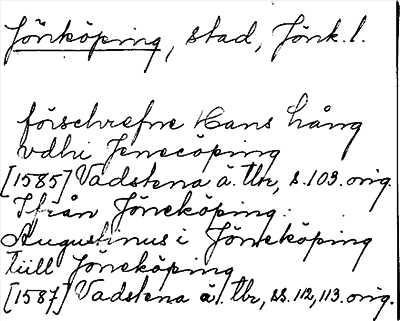 Jönköping, stad, Jönk. l.
förschrefne Hans Lång
vdhi Jenecöping
[1585] Vadstena ä. tbr, s. 109. orig.
Ifrån Jöneköping:
Augustinus i Jöneköping
tiill Jöneköping
[1587] Vadstena ä. tbr, ss. 112, 113. orig.